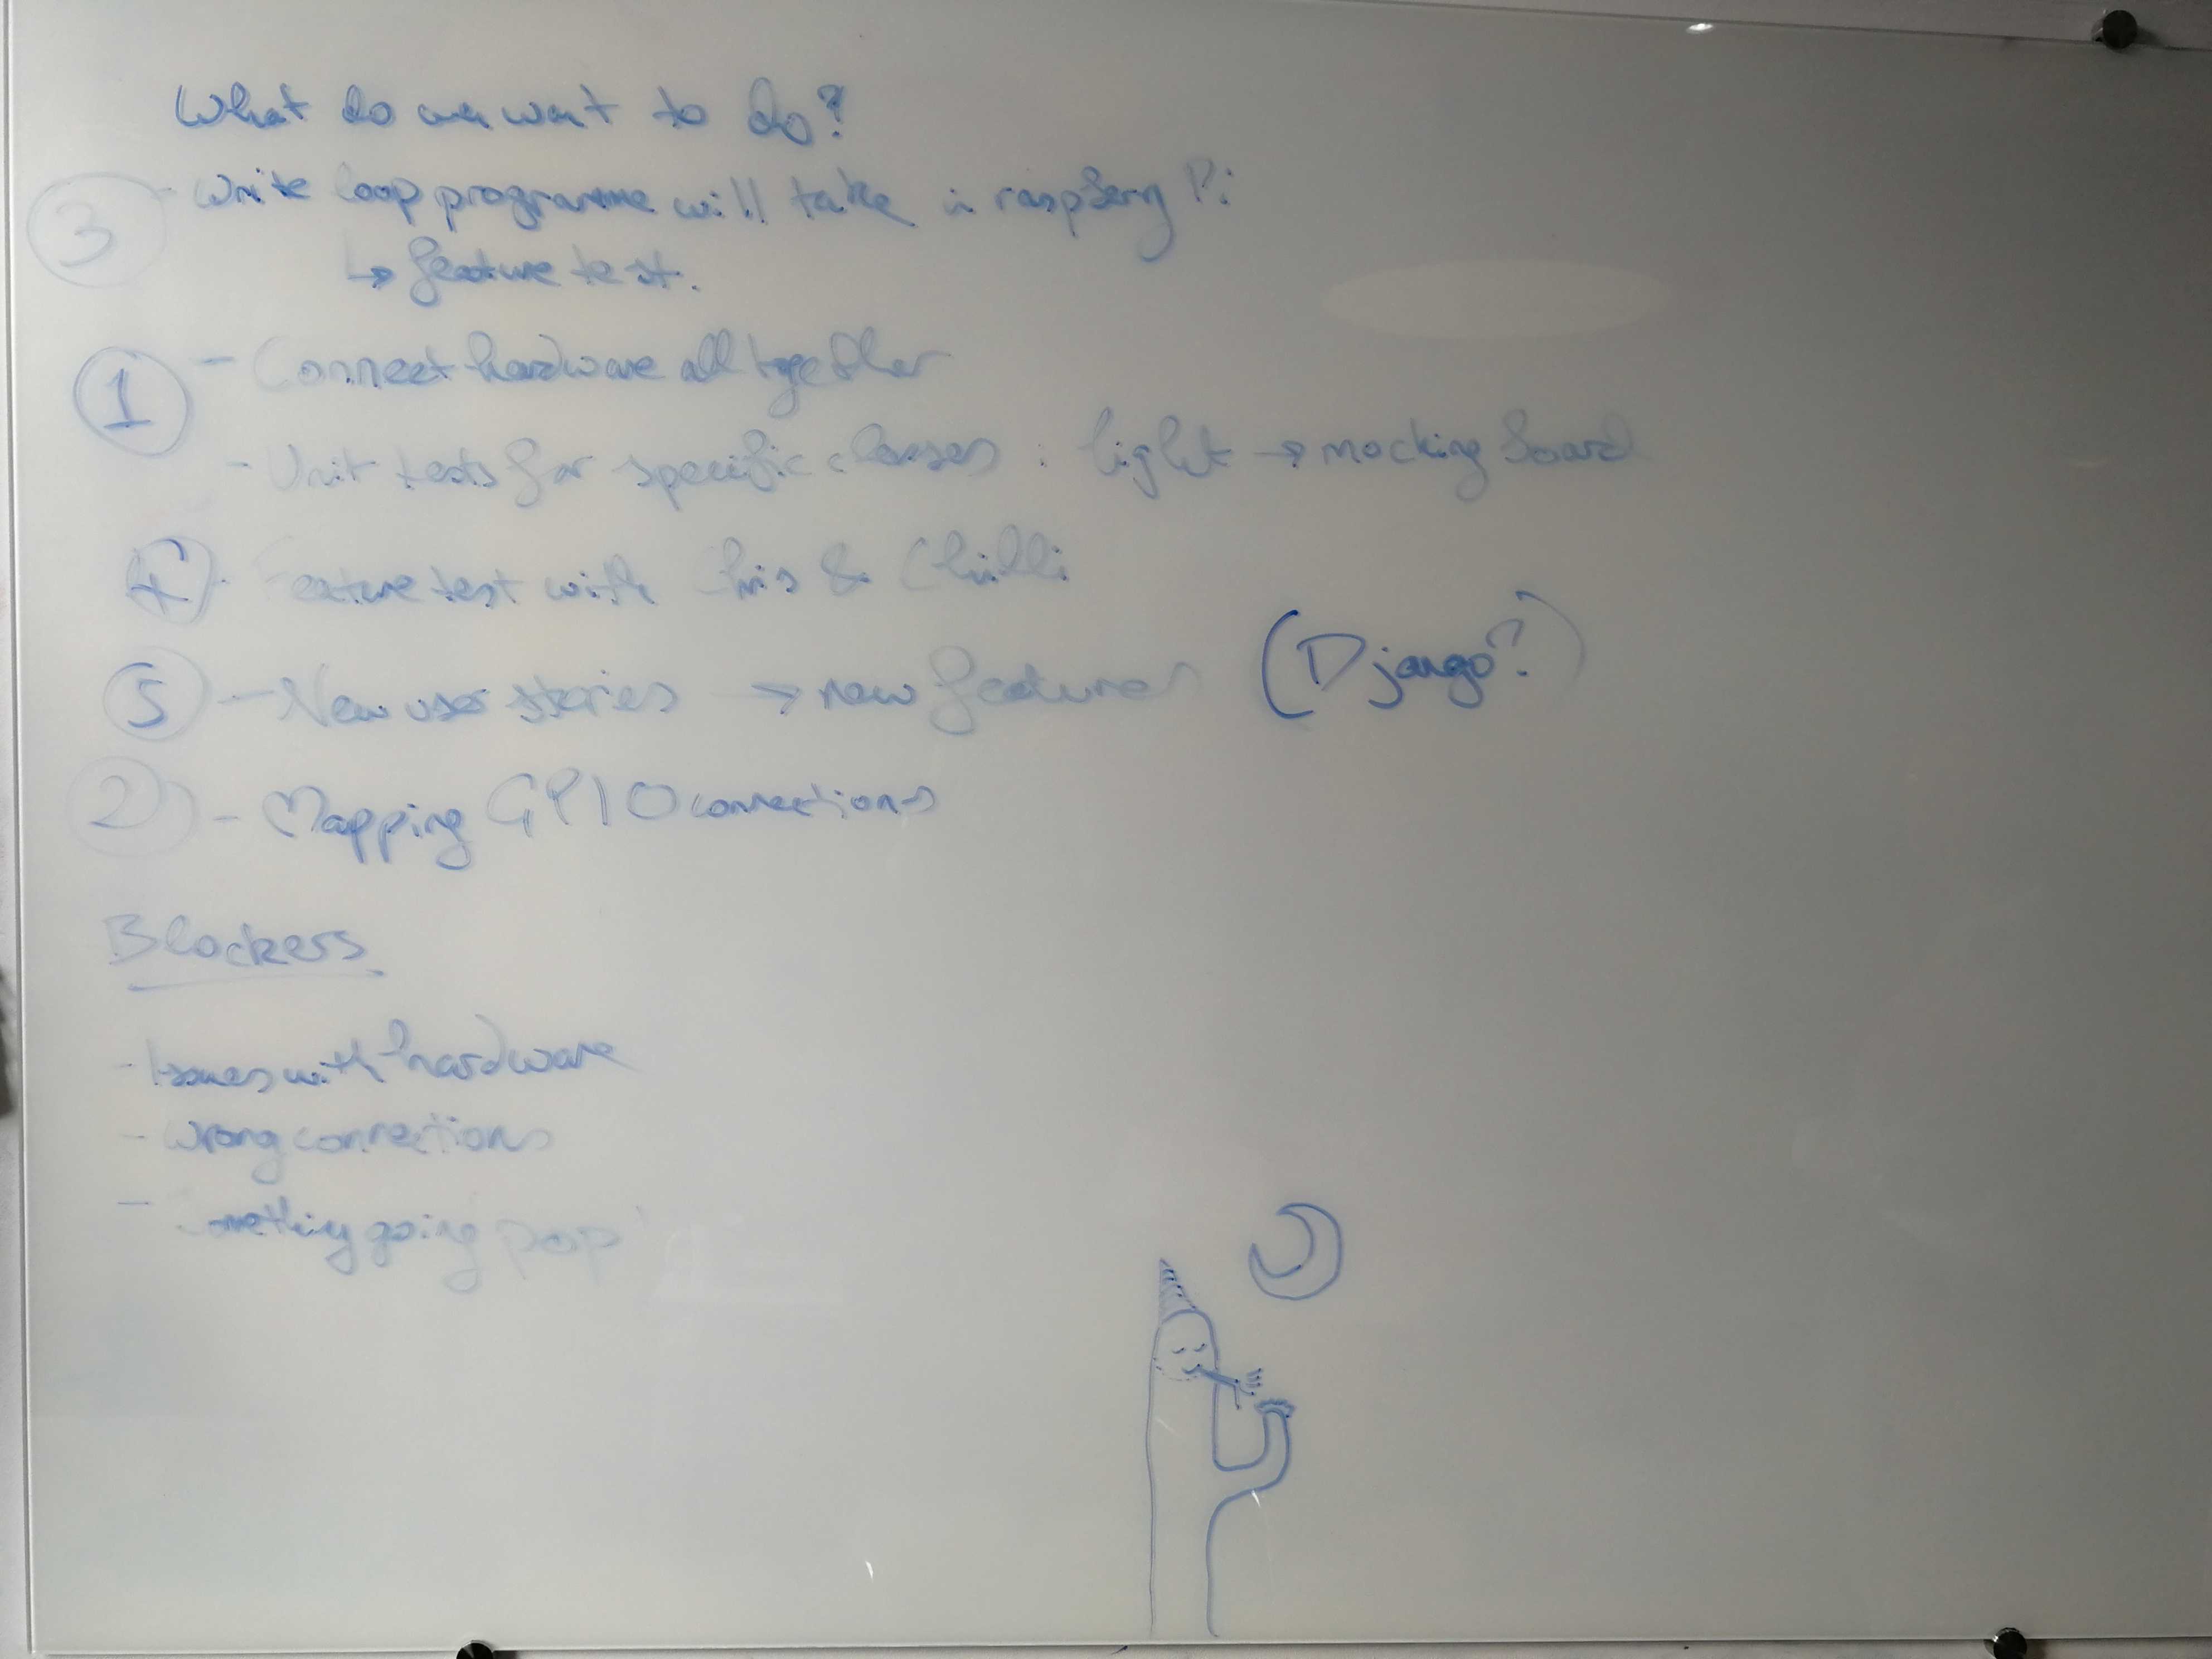 What do we want to do?
③ - Write loop programme will take in raspberry Pi
↳ feature test.
① - Connect hardware all together
- Unit tests for specific classes : light → mocking board
④ - Feature test with & Chilli
⑤ - New user stories → new features (Django?)
② - Mapping GPIO connections
Blockers
- Issues with hardware
- wrong connections
- Something going pop